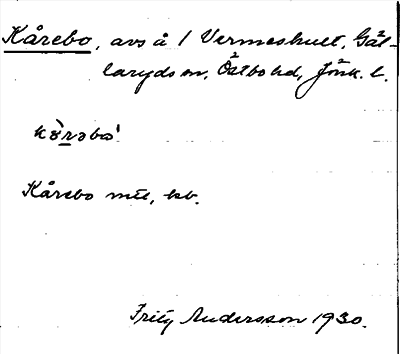 Kårebo, avs å 1 Vermeshult, Gål-
laryds sn, Östbo hd, Jönk. l.
Kårebo
Fritz Andersson 1930.